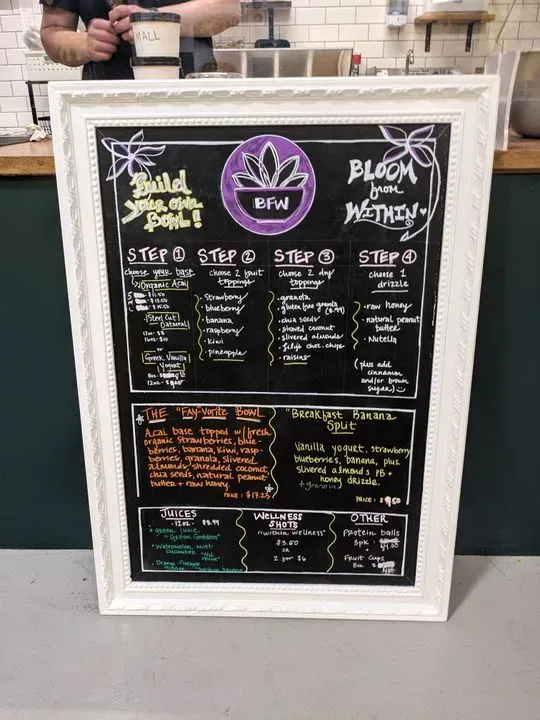 MALL
Build
your own
Bowl!
BFW
BLOOM
from
WITHIN
STEP 1
choose your base
Organic Acai
S
M
L
Steel Cut
Oatmeal
12oz - $8
16oz - $10
or
Greek Vanilla
Yogurt
8oz -
12oz -
STEP 2
choose 2 fruit
toppings
strawberry
blueberry
banana
raspberry
kiwi
pineapple
STEP 3
choose 2 dry
toppings
granola
gluten free granola
chia seeds
shaved coconut
slivered almonds
choc. chips
raisins
STEP 4
choose 1
drizzle
raw honey
natural peanut
butter
Nutella
(plus add
cinnamon
and/or brown
sugar)
THE "FAY-vorite BOWL
Acai base topped w/fresh
organic strawberries, blue-
berries, banana, kiwi, rasp-
berries, granola, slivered
almonds, shredded coconut,
chia seeds, natural peanut
butter + raw honey.
PRICE: $17.25
"Breakfast Banana
Split
Vanilla yogurt, strawberry
blueberries, banana, plus
slivered almonds PB +
honey drizzle.
+granola
PRICE: $9.50
JUICES
12oz - $8.99
green juice
"Green Goddess"
Watermelon mint
cucumber
WELLNESS
SHOTS
"within wellness"
$3.50
or
2 for $6
OTHER
Protein balls
3pk :
+
Fruit Cups
8oz